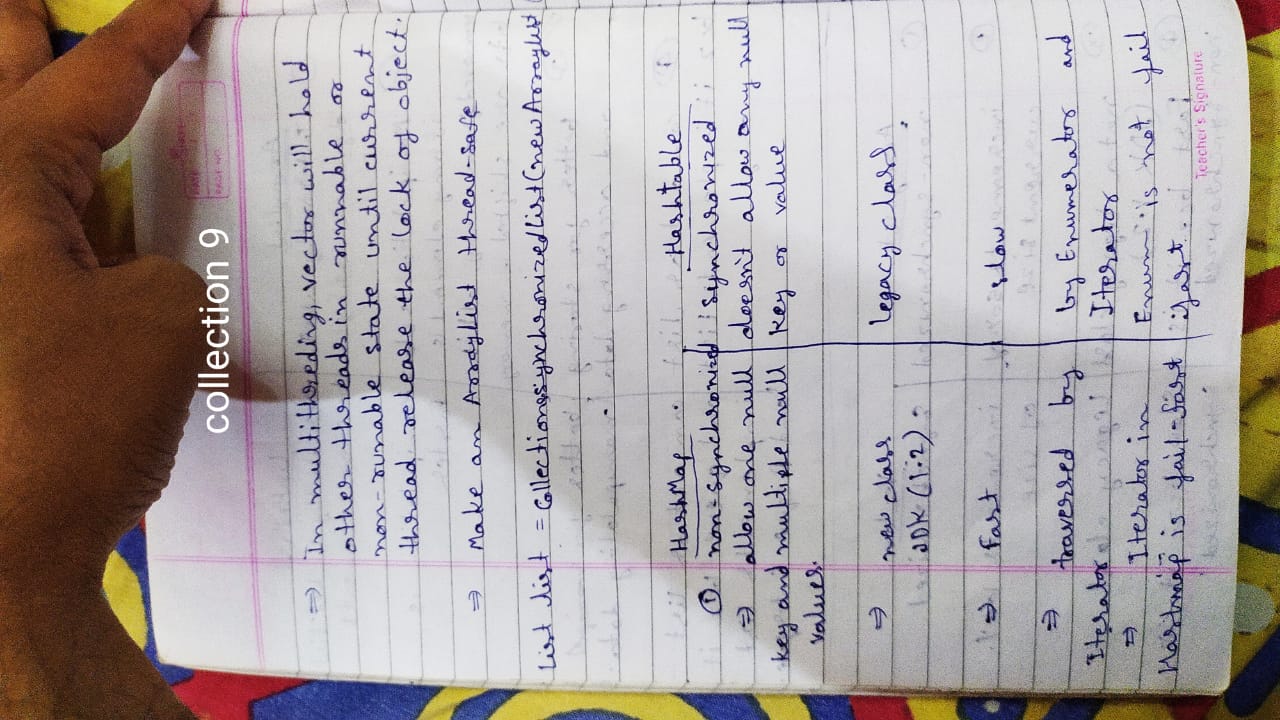 collection 9
DATE
PAGE NO.
⇒ In multithreding, vector will hold
other threads in runnable or
non-runable state until current
thread release the lock of object.
⇒ Make an ArraylList thread-safe
List list = Collections synchronizedList(new Arraylist
HashMap Hashtable
① non-synchronized synchronized
⇒ allow one null doesn't allow any null
key and multiple null key or value
values.
⇒ new class Legacy class.
JDK (1.2).
⇒ Fast slow
⇒ traversed by by Enumerator and
Iterator Iterator
⇒ Iterator in Enum is not fail
Hashmap is fail-fast fast.
Teacher's Signature